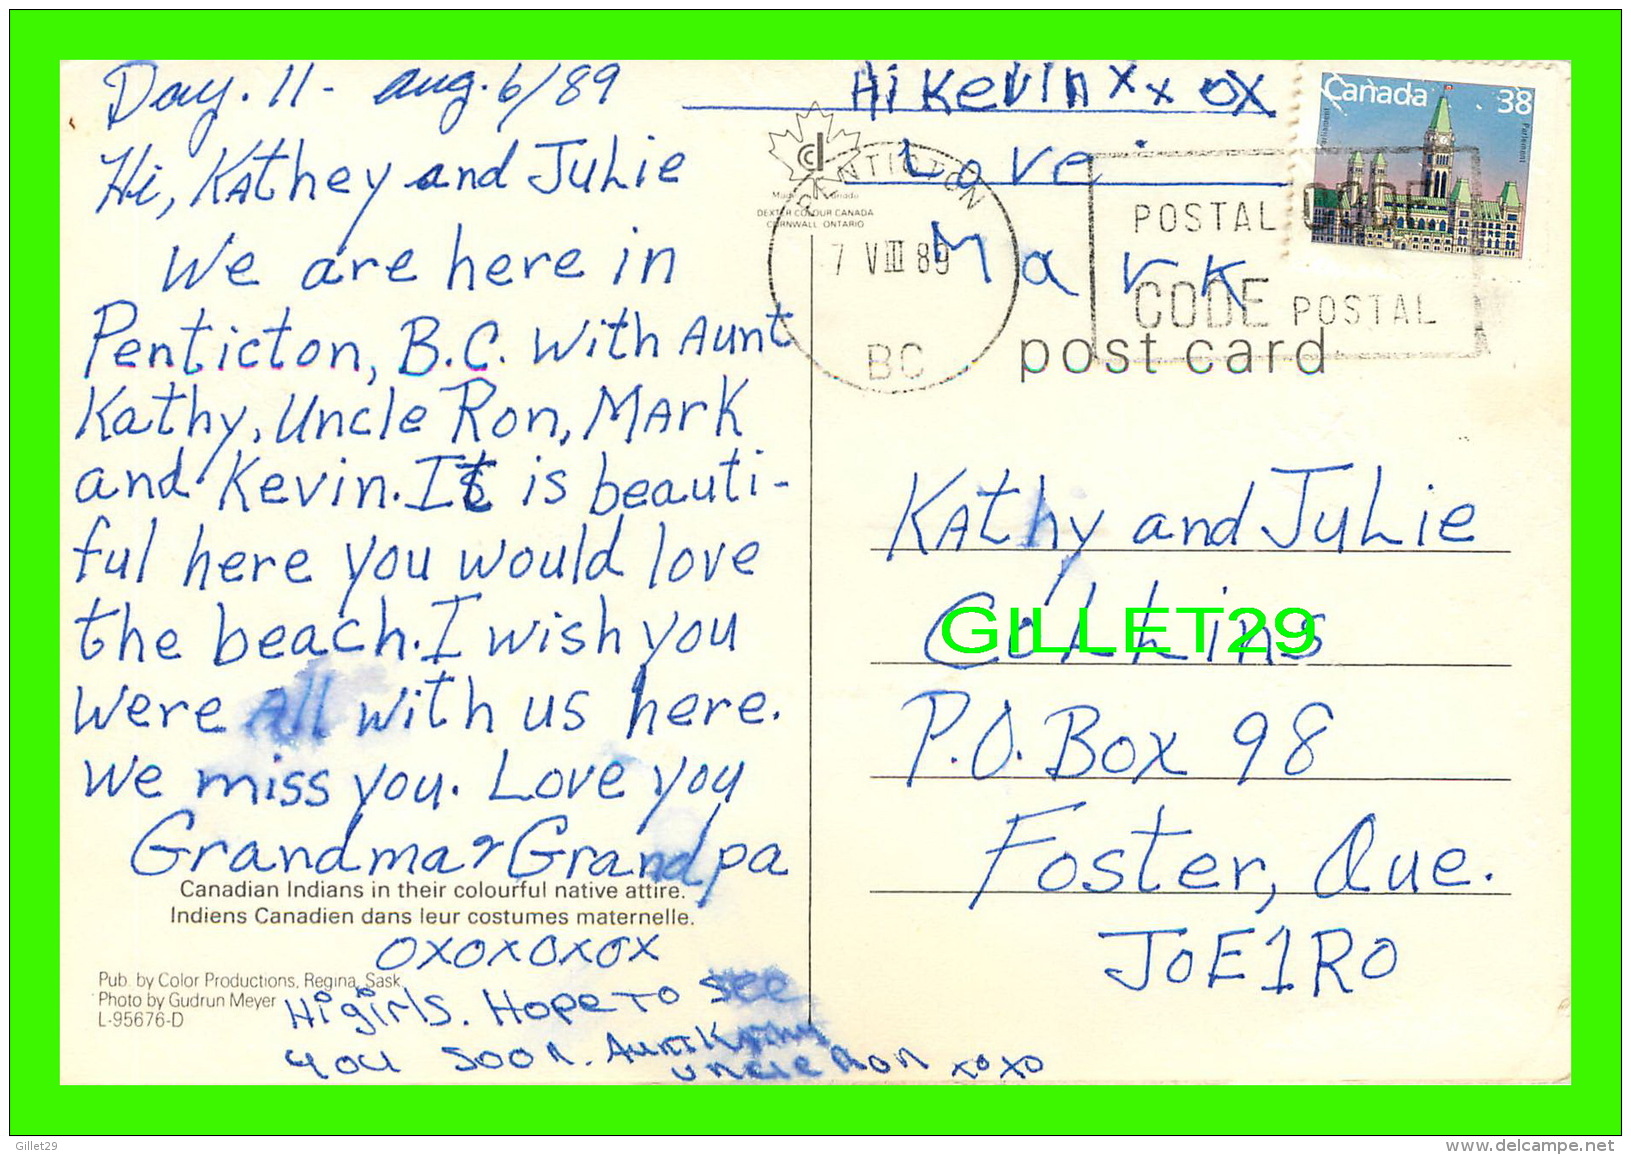 Day. 11 - Aug. 6/89
Hi, Kathey and Julie
We are here in
Penticton, B.C. With Aunt
Kathy, Uncle Ron, Mark
and Kevin. It is beauti-
ful here you would love
the beach. I wish you
were All with us here.
We miss you. Love you
Grandma & Grandpa
Canadian Indians in their colourful native attire.
Indiens Canadien dans leur costumes maternelle.
OXOXOXOX
Pub. by Color Productions, Regina, Sask.
Photo by Gudrun Meyer
L-95676-D
Hi girls. Hope to see
you soon. Aunt Kathy
Uncle Ron xoxo
Hi Kevin X x OX
Love
Mark
cd
DEXTER COLOUR CANADA
CORNWALL, ONTARIO
PENTICTON
7 VIII 89
BC
POSTAL CODE
CODE POSTAL
Canada 38
Parliament
post card
Kathy and Julie
GILLET29
P.O. Box 98
Foster, Que.
J0E1R0
Gillet29
www.delcampe.net